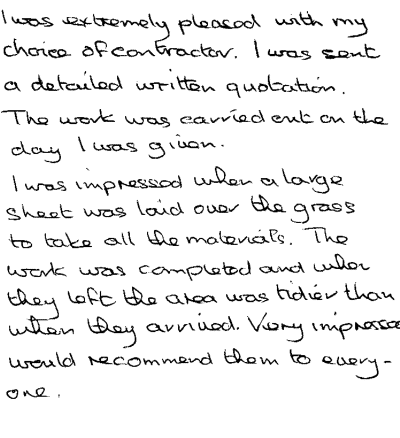 I was extremely pleased with my
choice of contractor. I was sent
a detailed written quotation.
The work was carried out on the
day I was given.
I was impressed when a large
sheet was laid over the grass
to take all the materials. The
work was completed and when
they left the area was tidier than
when they arrived. Very impressed
would recommend them to every-
one.